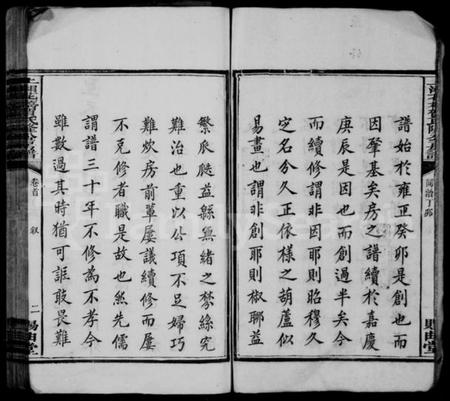 譜始於雍正癸卯是創也而
因肇基矣房之譜續於嘉慶
庚辰是因也而創過半矣今
而續修謂非因耶則昭穆久
定名分久正依樣之葫蘆似
易畫也謂非創耶則椒聊益
同治丁卯
則由堂
繁瓜瓞益緜無緒之棼絲究
難治也重以公項不足婦巧
難炊房前輩屢議續修而屢
不克修者職是故也然先儒
謂譜三十年不修為不孝今
雖數過其時猶可諉敢畏難
卷首
叙
二